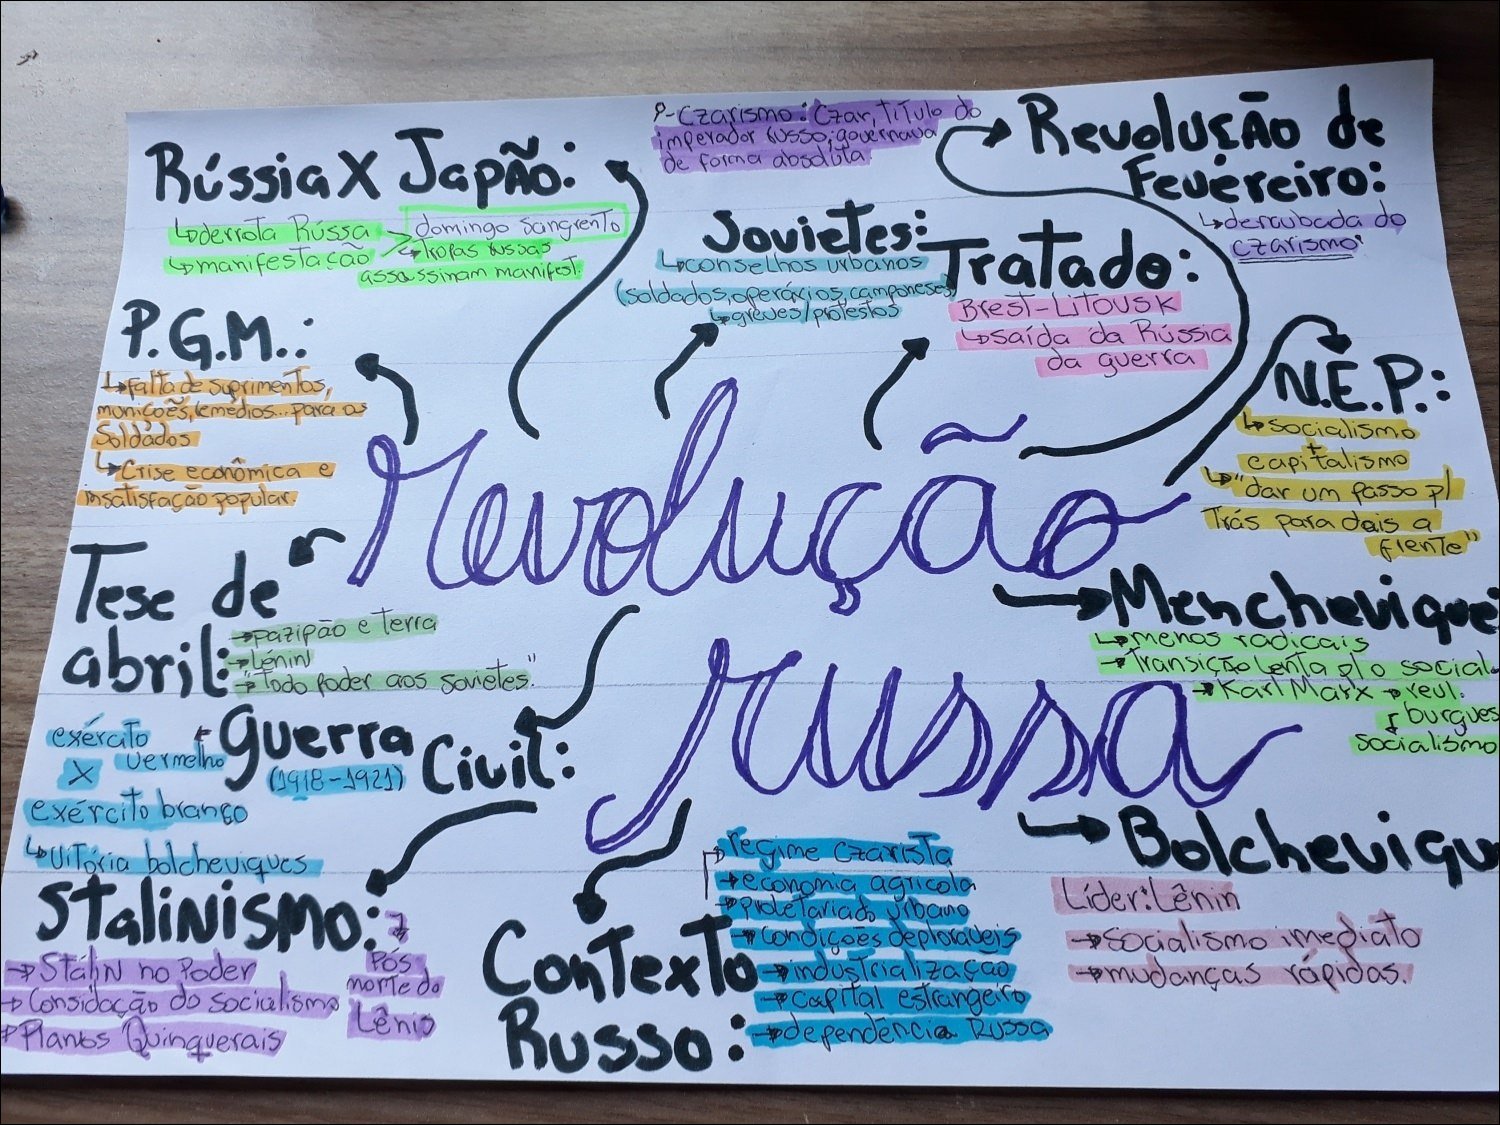 Rússia X Japão:
↳derrota Rússa
↳manifestação
domingo sangrento
↳Tropas russas
assassinam manifest.
P-Czarismo: Czar, título do
imperador russo; governava
de forma absoluta
Revolução de
Fevereiro:
↳derrubada do
czarismo.
Sovietes:
↳conselhos urbanos
(soldados, operários, camponeses)
↳greves/protestos
Tratado:
Brest-Litovsk
↳saída da Rússia
da guerra
P.G.M.:
↳Falta de suprimentos,
munições, remédios... para os
soldados
↳Crise econômica e
insatisfação popular.
N.E.P.:
↳socialismo
+
capitalismo
↳"dar um passo p/
Trás para dois a
frente"
Revolução
russa
Tese de
abril:
→paz, pão e terra
→Lênin
→"Todo poder aos sovietes."
Menchevique
↳menos radicais
→Transição lenta p/ o social.
→Karl Marx → revl.
burgues
socialismo
Guerra Civil:
(1918-1921)
exército
vermelho
X
exército branco
↳Vitória bolcheviques
Bolcheviqu
Líder: Lênin
→socialismo imediato
→mudanças rápidas.
Stalinismo:
→Stálin no Poder
→Considação do socialismo
→Planos Quinquerais
Pós-
morte do
Lênis
Contexto
Russo:
→regime czarista
→economia agrícola
→proletariado urbano
→condições deploráveis
→industrialização
→capital estrangeiro
→dependência Russa